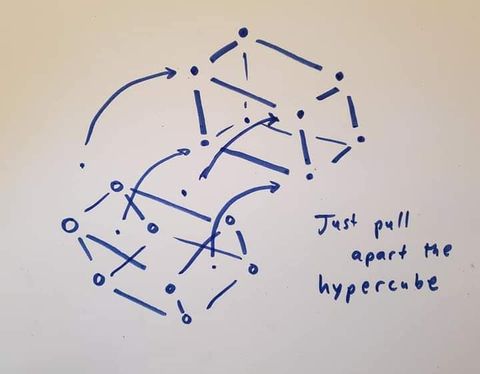 Just pull
apart the
hypercube